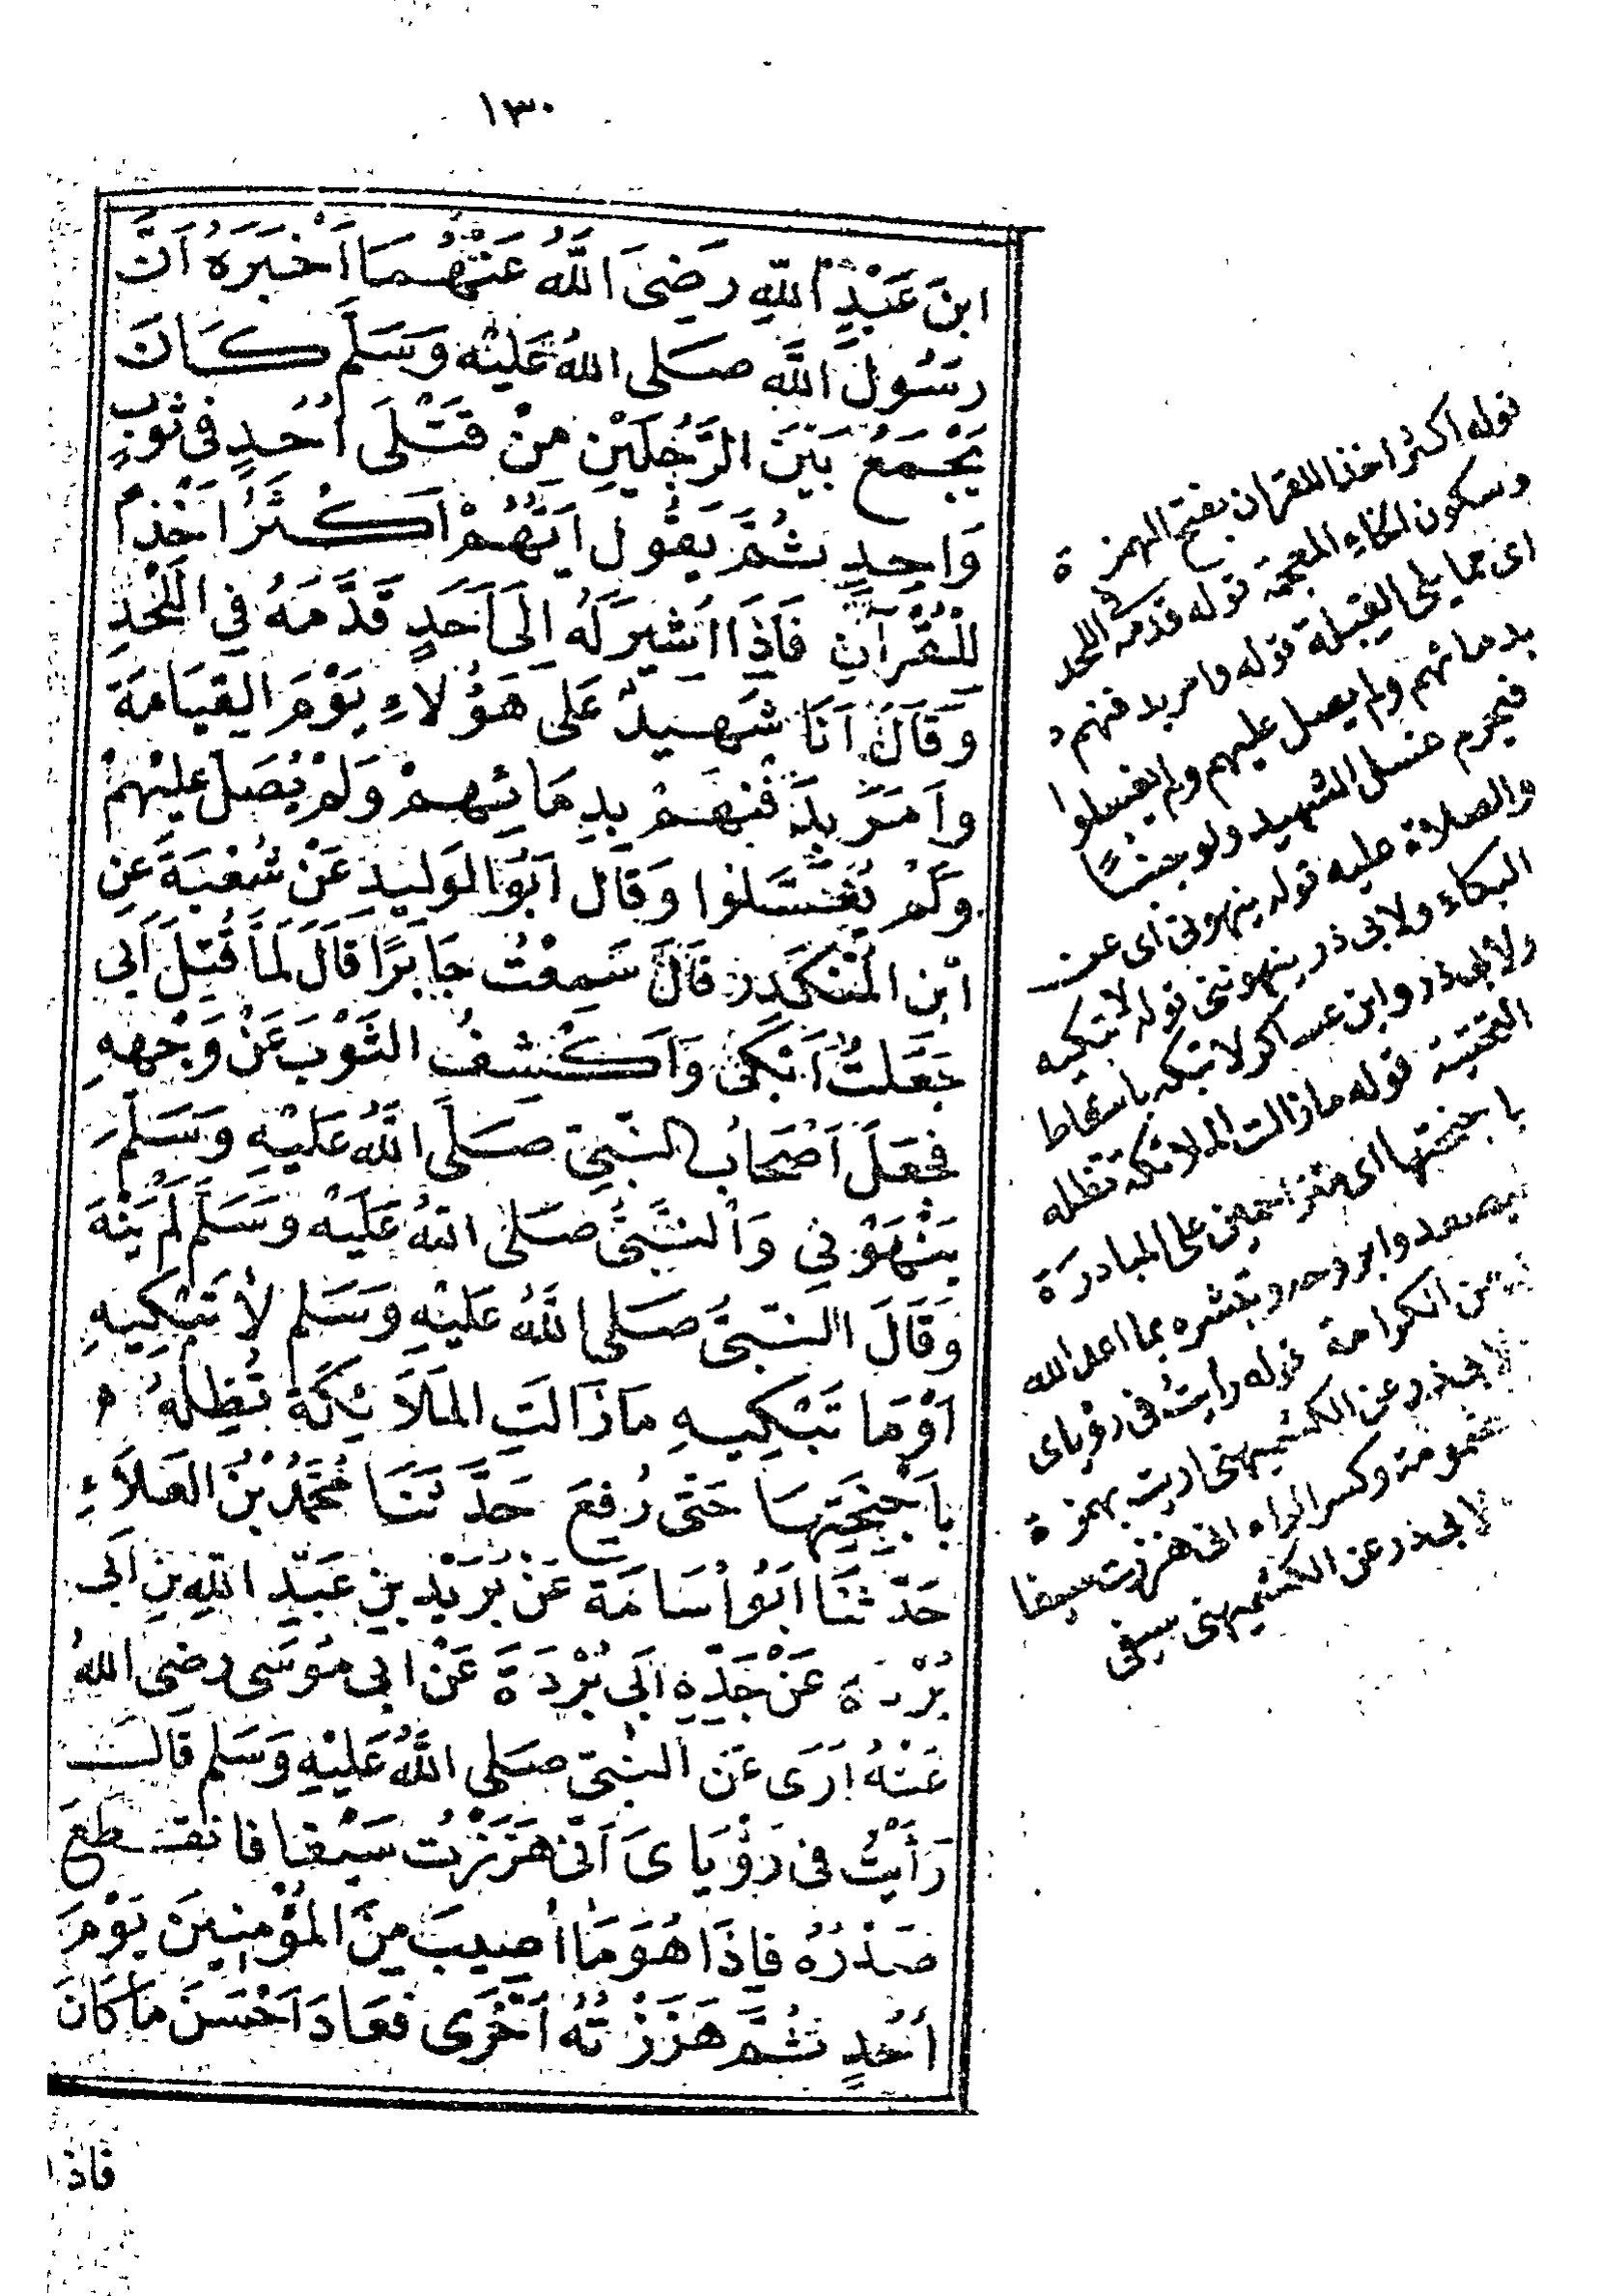 ١٣٠
ابنَ عَبْدِ اللهِ رَضِىَ اللهُ عَنْهُمَا اَخْبَرَهُ اَنَّ
رسَوُلَ اللهِ صَلى اللهُ عَلَيْه وَسَلَّم كَانَ
يَجْمَعُ بَيْنَ الرَّجُلَيْنِ مِنْ قَتْلَى اُحُدٍ فى ثَوبٍ
وَاحِدٍ ثُمَّ يَقُول اَيُّهُمْ اَكْثَرُ اَخْذاً
لِلْقُرْآنِ فَاِذَا اُشيرَ لَهُ اِلَى اَحَدٍ قَدَّمَهُ فِي اللَّحْدِ
وَقَالَ اَنَا شَهِيدٌ عَلَى هَؤُلاءِ يَوْمَ القِيَامَة
واَمَرَ بِدَفْنِهِمْ بِدِمَائِهِمْ وَلَمْ يُصَلِّ عَلَيْهِمْ
وَلَمْ يُغَسَّلوا وَقَال اَبُو الوَليدِ عَنْ شُعْبَةَ عَنِ
ابْن المُنْكَدِرِ قَالَ سَمِعْتُ جَابِرًا قَالَ لَمَّا قُتِلَ اَبى
جَعَلتُ اَبْكى وَاَكْشفُ الثَّوْبَ عَنْ وَجْههِ
فجَعَلَ اَصْحَابُ النَّبِيّ صَلَى اللهُ عَلَيْهِ وَسَلَّمَ
يَنْهَوْنِي وَالنَّبِىُّ صَلى اللهُ عَلَيْه وَسَلَّم لَمْ يَنْهَ
وَقَالَ النَّبىُّ صَلى اللهُ عَلَيْهِ وَسَلم لاَ تَبْكِيهِ
اَوْمَا تَبْكِيهِ مَازَالَتِ المَلاَئِكَةُ تُظِلّهُ
بِاَجْنِحَتِهَا حَتى رُفِعَ حَدَّثَنَا مُحَمَّدُ بْنُ العَلاَءِ
حَدَّثَنَا اَبُو اُسَامَةَ عَنْ بُرَيْدِ بنِ عَبْدِ اللهِ بْنِ اَبى
بُرْدَةَ عَنْ جَدِّهِ اَبى بُرْدَةَ عَنْ ابى موُسَى رضى اللهُ
عَنْهُ اُرَى عَن النَّبىّ صَلى اللهُ عَلَيْهِ وَسَلم قَالَ
رَأيْتُ فى رُؤْيَاىَ اَنّى هَزَزْت سَيْفا فانقَطَعَ
صَدْرُهُ فاِذَا هُوَ مَا اُصِيبَ مِنَ المُؤْمِنِينَ يَوْمَ
اُحُدٍ ثُمَّ هَزَزْتُهُ اُخْرَى فعَادَ اَحْسَنَ مَا كَانَ
فاذا
قوله اكثر اخذا للقران بفتح الهمزة
وسكون الخاء المعجمة قوله قدمه فى اللحد
اى مما يلى القبلة قوله وامر بدفنهم
بدمائهم ولم يصل عليهم ولم يغسلوا
فيحرم غسل الشهيد ولو جنبًا
والصلاة عليه قوله ينهونى اى عن
البكاء ولابى ذر ينهوننى قوله لا تبكيه
ولابى ذر وابن عساكر لا تبكه باسقاط
التحتية قوله مازالت الملائكة تظله
باجنحتها اى متزاحمين على المبادرة
بصعود وابروحه وتبشره بما اعد الله
من الكرامة قوله رايتُ فى رؤياى
لابى ذر عن الكشميهنى اريت بهمزة
مضمومة وكسر الراء انى هززت سيفا
لابى ذر عن الكشميهنى سيفى